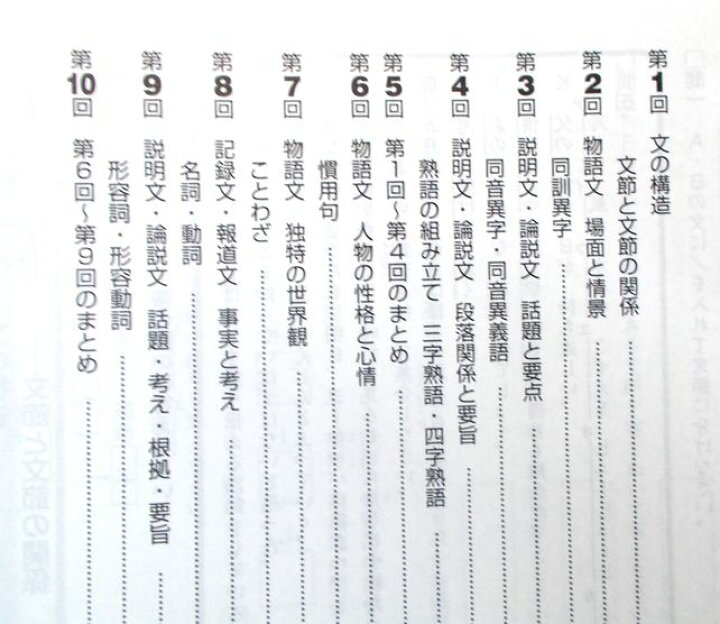 第1回 文の構造
文節と文節の関係
第2回 物語文 場面と情景
同訓異字
第3回 説明文・論説文 話題と要点
同音異字・同音異義語
第4回 説明文・論説文 段落関係と要旨
熟語の組み立て 三字熟語・四字熟語
第5回 第1回~第4回のまとめ
第6回 物語文 人物の性格と心情
慣用句
第7回 物語文 独特の世界観
ことわざ
第8回 記録文・報道文 事実と考え
名詞・動詞
第9回 説明文・論説文 話題・考え・根拠・要旨
形容詞・形容動詞
第10回 第6回~第9回のまとめ